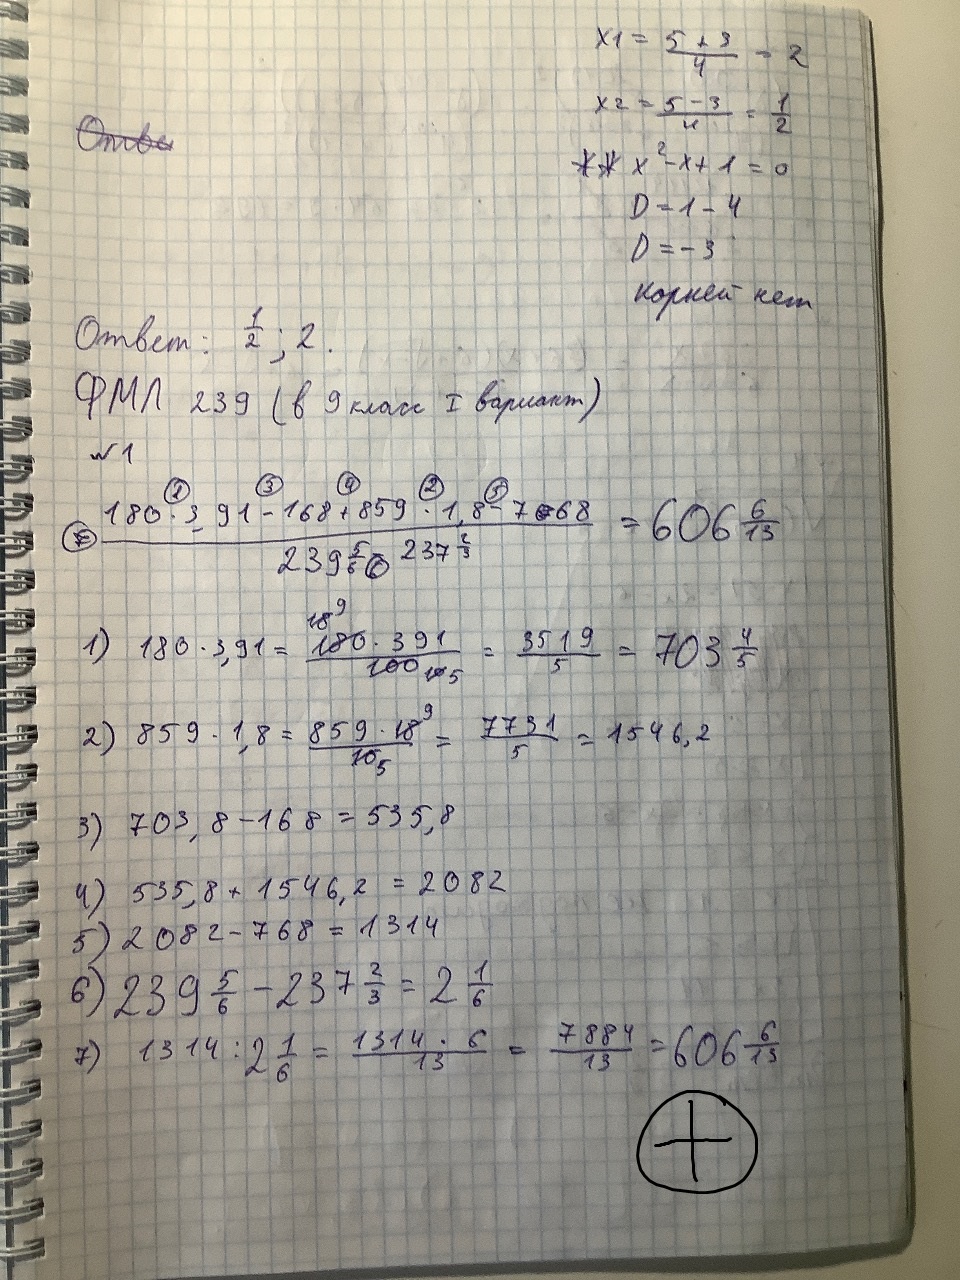 x1 = 5+3/4 = 2
x2 = 5-3/4 = 1/2
** x²-x+1=0
D=1-4
D=-3
корней нет
Ответ: 1/2; 2.
ФМЛ 239 (в 9 класс I вариант)
№1
180·3,91-168+859·1,8-768 / 239 5/6 - 237 2/3 = 606 6/13
1) 180·3,91 = 180·391/100 = 3519/5 = 703 4/5
2) 859·1,8 = 859·18/10 = 7731/5 = 1546,2
3) 703,8-168=535,8
4) 535,8+1546,2=2082
5) 2082-768=1314
6) 239 5/6 - 237 2/3 = 2 1/6
7) 1314:2 1/6 = 1314·6/13 = 7884/13 = 606 6/13